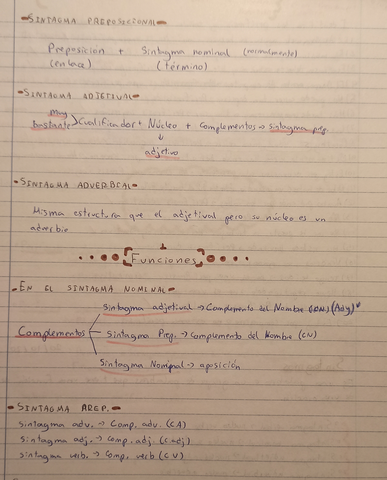 SINTAGMA PREPOSICIONAL
Preposición + Sintagma nominal (normalmente)
(enlace) (término)
SINTAGMA ADJETIVAL
Muy
bastante > Cualificador + Núcleo + Complementos → Sintagma prep.
↓
adjetivo
SINTAGMA ADVERBIAL
Misma estructura que el adjetival pero su núcleo es un
adverbio
Funciones
EN EL SINTAGMA NOMINAL
Sintagma adjetival → Complemento del Nombre (Ady)*
Complementos Sintagma Prep. → Complemento del Nombre (CN)
Sintagma Nominal → aposición
SINTAGMA PREP.
Sintagma adv. → Comp. adv. (CA)
Sintagma adj. → Comp. adj. (C adj)
Sintagma verb. → Comp. verb (CV)